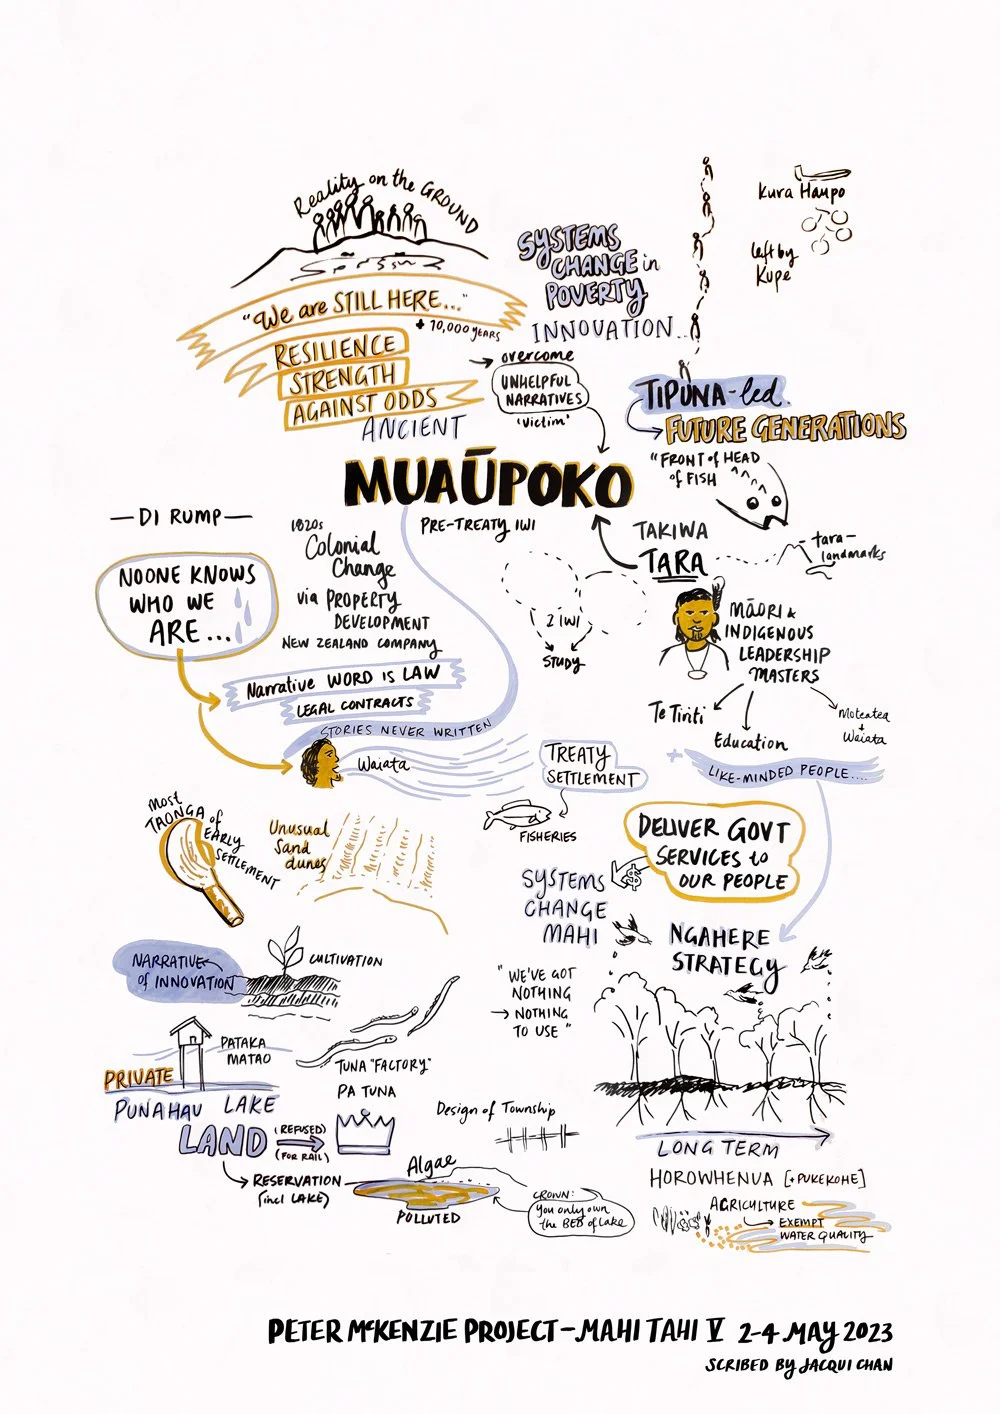 Reality on the GROUND
"We are STILL HERE..."
+ 10,000 YEARS
RESILIENCE
STRENGTH
AGAINST ODDS
ANCIENT
SYSTEMS
CHANGE in
POVERTY
INNOVATION...
→ overcome
UNHELPFUL
NARRATIVES
'victim'
Kura Haupo
left by
Kupe
TIPUNA-led.
FUTURE GENERATIONS
"FRONT of HEAD
of FISH
MUAŪPOKO
PRE-TREATY IWI
— DI RUMP —
NOONE KNOWS
WHO WE
ARE...
1820s
Colonial
Change
via PROPERTY
DEVELOPMENT
NEW ZEALAND COMPANY
Narrative WORD IS LAW
LEGAL CONTRACTS
STORIES NEVER WRITTEN
Waiata
2 IWI
STUDY
TAKIWA
TARA
tara-
landmarks
MĀORI &
INDIGENOUS
LEADERSHIP
MASTERS
Te Tiriti
Education
Moteatea
+
Waiata
+ LIKE-MINDED PEOPLE....
TREATY
SETTLEMENT
FISHERIES
Most
TAONGA of
EARLY
SETTLEMENT
Unusual
Sand
dunes
DELIVER GOVT
SERVICES to
OUR PEOPLE
$
SYSTEMS
CHANGE
MAHI
NGAHERE
STRATEGY
"WE'VE GOT
NOTHING
→ NOTHING
TO USE"
NARRATIVE
of INNOVATION
CULTIVATION
PATAKA
MATAO
TUNA "FACTORY"
PA TUNA
PRIVATE
PUNAHAU LAKE
LAND
(REFUSED)
(FOR RAIL)
RESERVATION
(incl LAKE)
Algae
POLLUTED
CROWN:
You only own
the BED of Lake
Design of Township
LONG TERM
HOROWHENUA [+PUKEKOHE]
AGRICULTURE
EXEMPT
WATER QUALITY
PETER McKENZIE PROJECT – MAHI TAHI V 2-4 MAY 2023
SCRIBED BY JACQUI CHAN